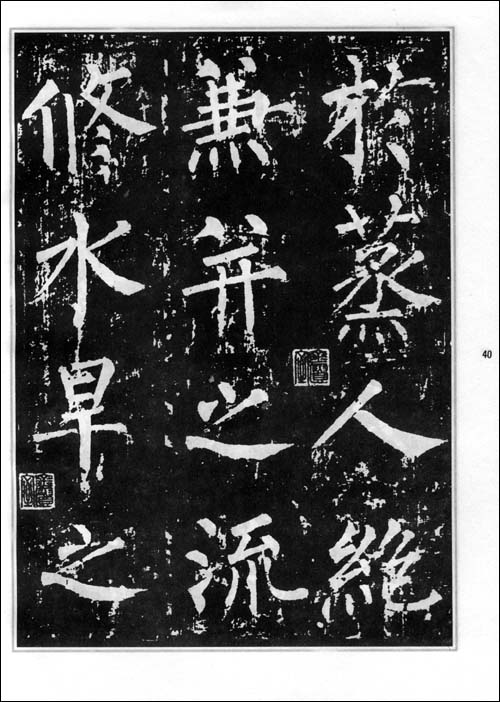 於蒸人絶
兼并之流
修水旱之
40